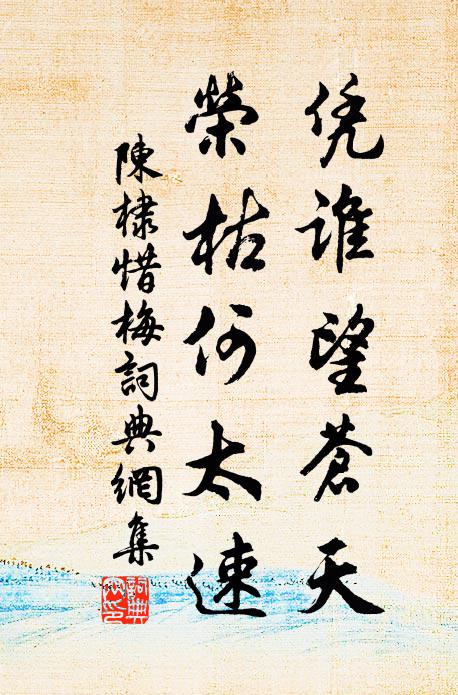 凭誰望蒼天
榮枯何太速
陳棣惜梅詞典網集